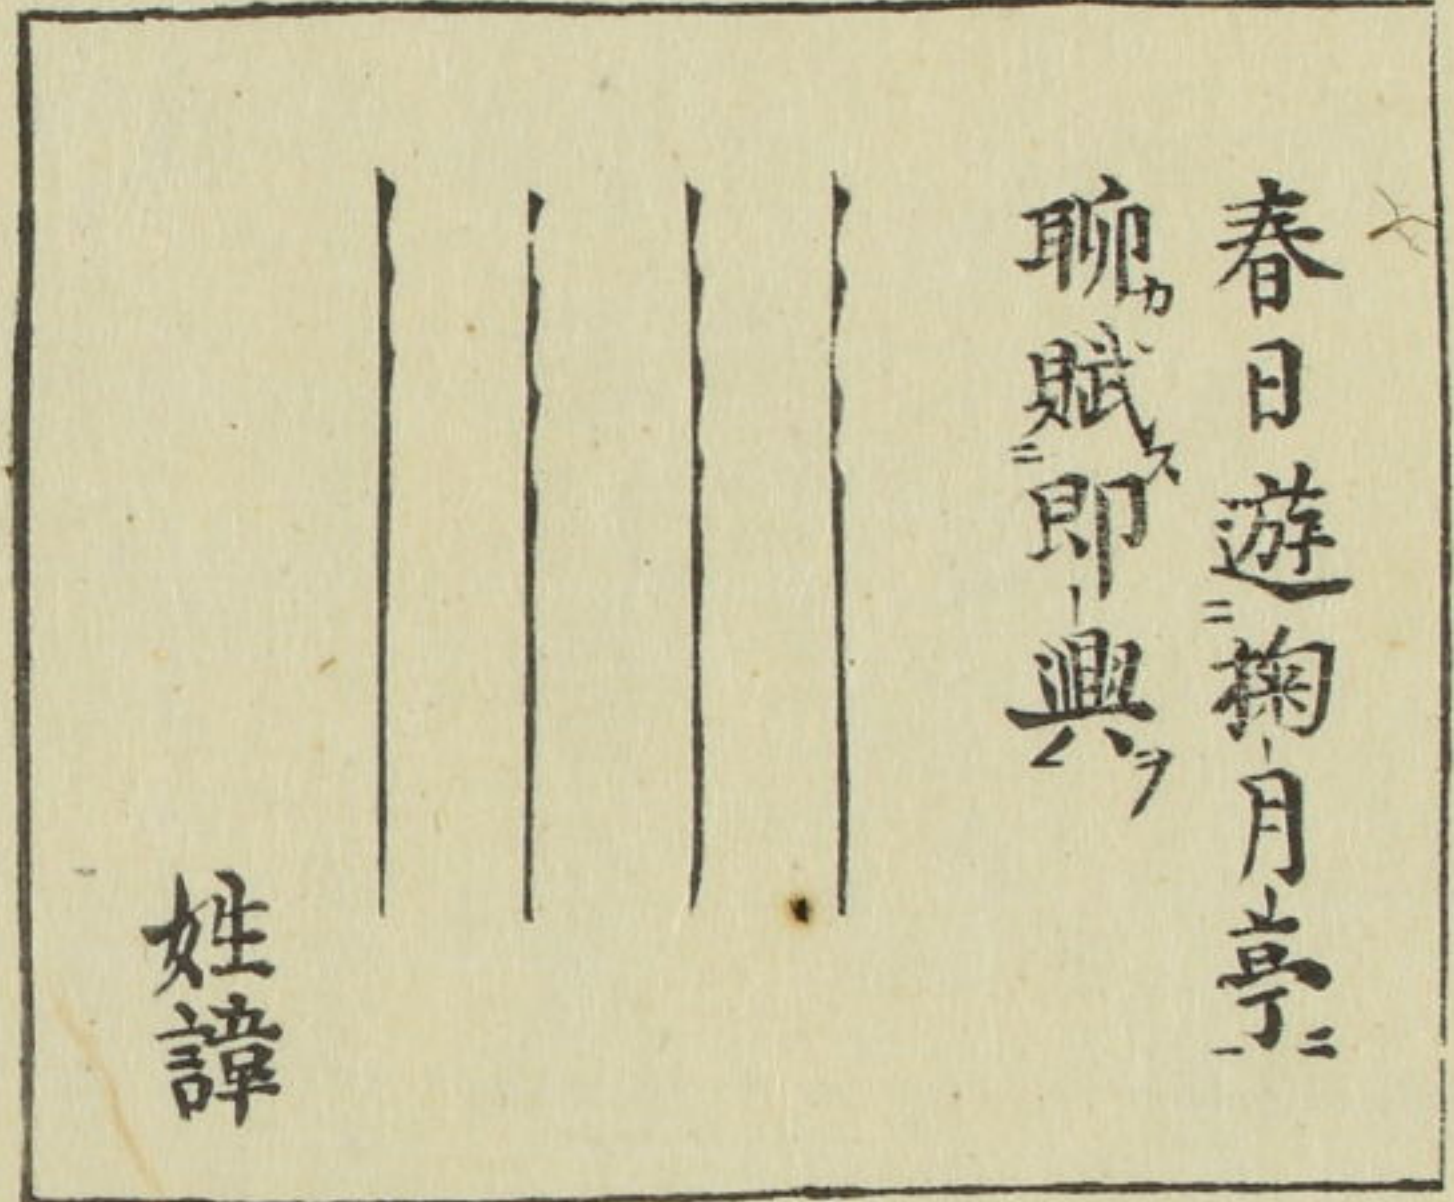 春日遊㆓掬-月-亭㆒ニ
聊カ賦ス㆓即-興ヲ㆒
姓諱